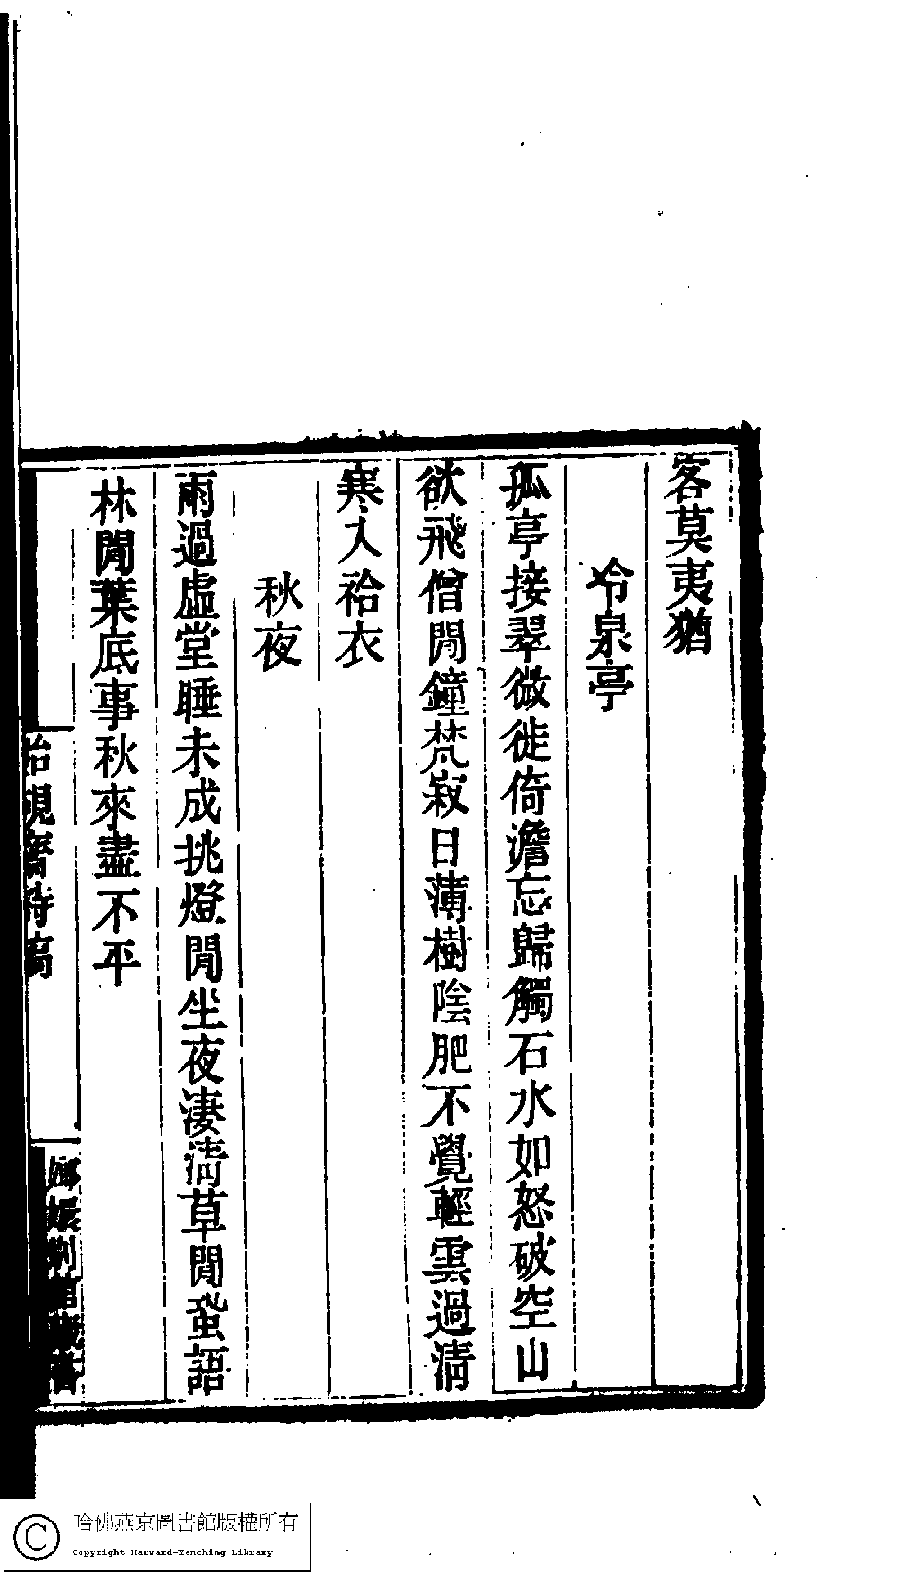 客莫夷猶
冷泉亭
孤亭接翠微徙倚澹忘歸觸石水如怒破空山
欲飛僧閒鐘梵寂日薄樹陰肥不覺輕雲過清
寒入袷衣
秋夜
雨過虛堂睡未成挑燈閒坐夜淒清草閒蛩語
林閒葉底事秋來盡不平
硯齋詩稿
哈佛燕京圖書館版權所有
Copyright Harvard-Yenching Library